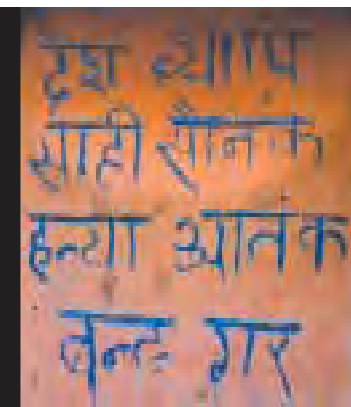 देश व्यापि
शाही सैनिक
हत्या आतंक
बन्द गर